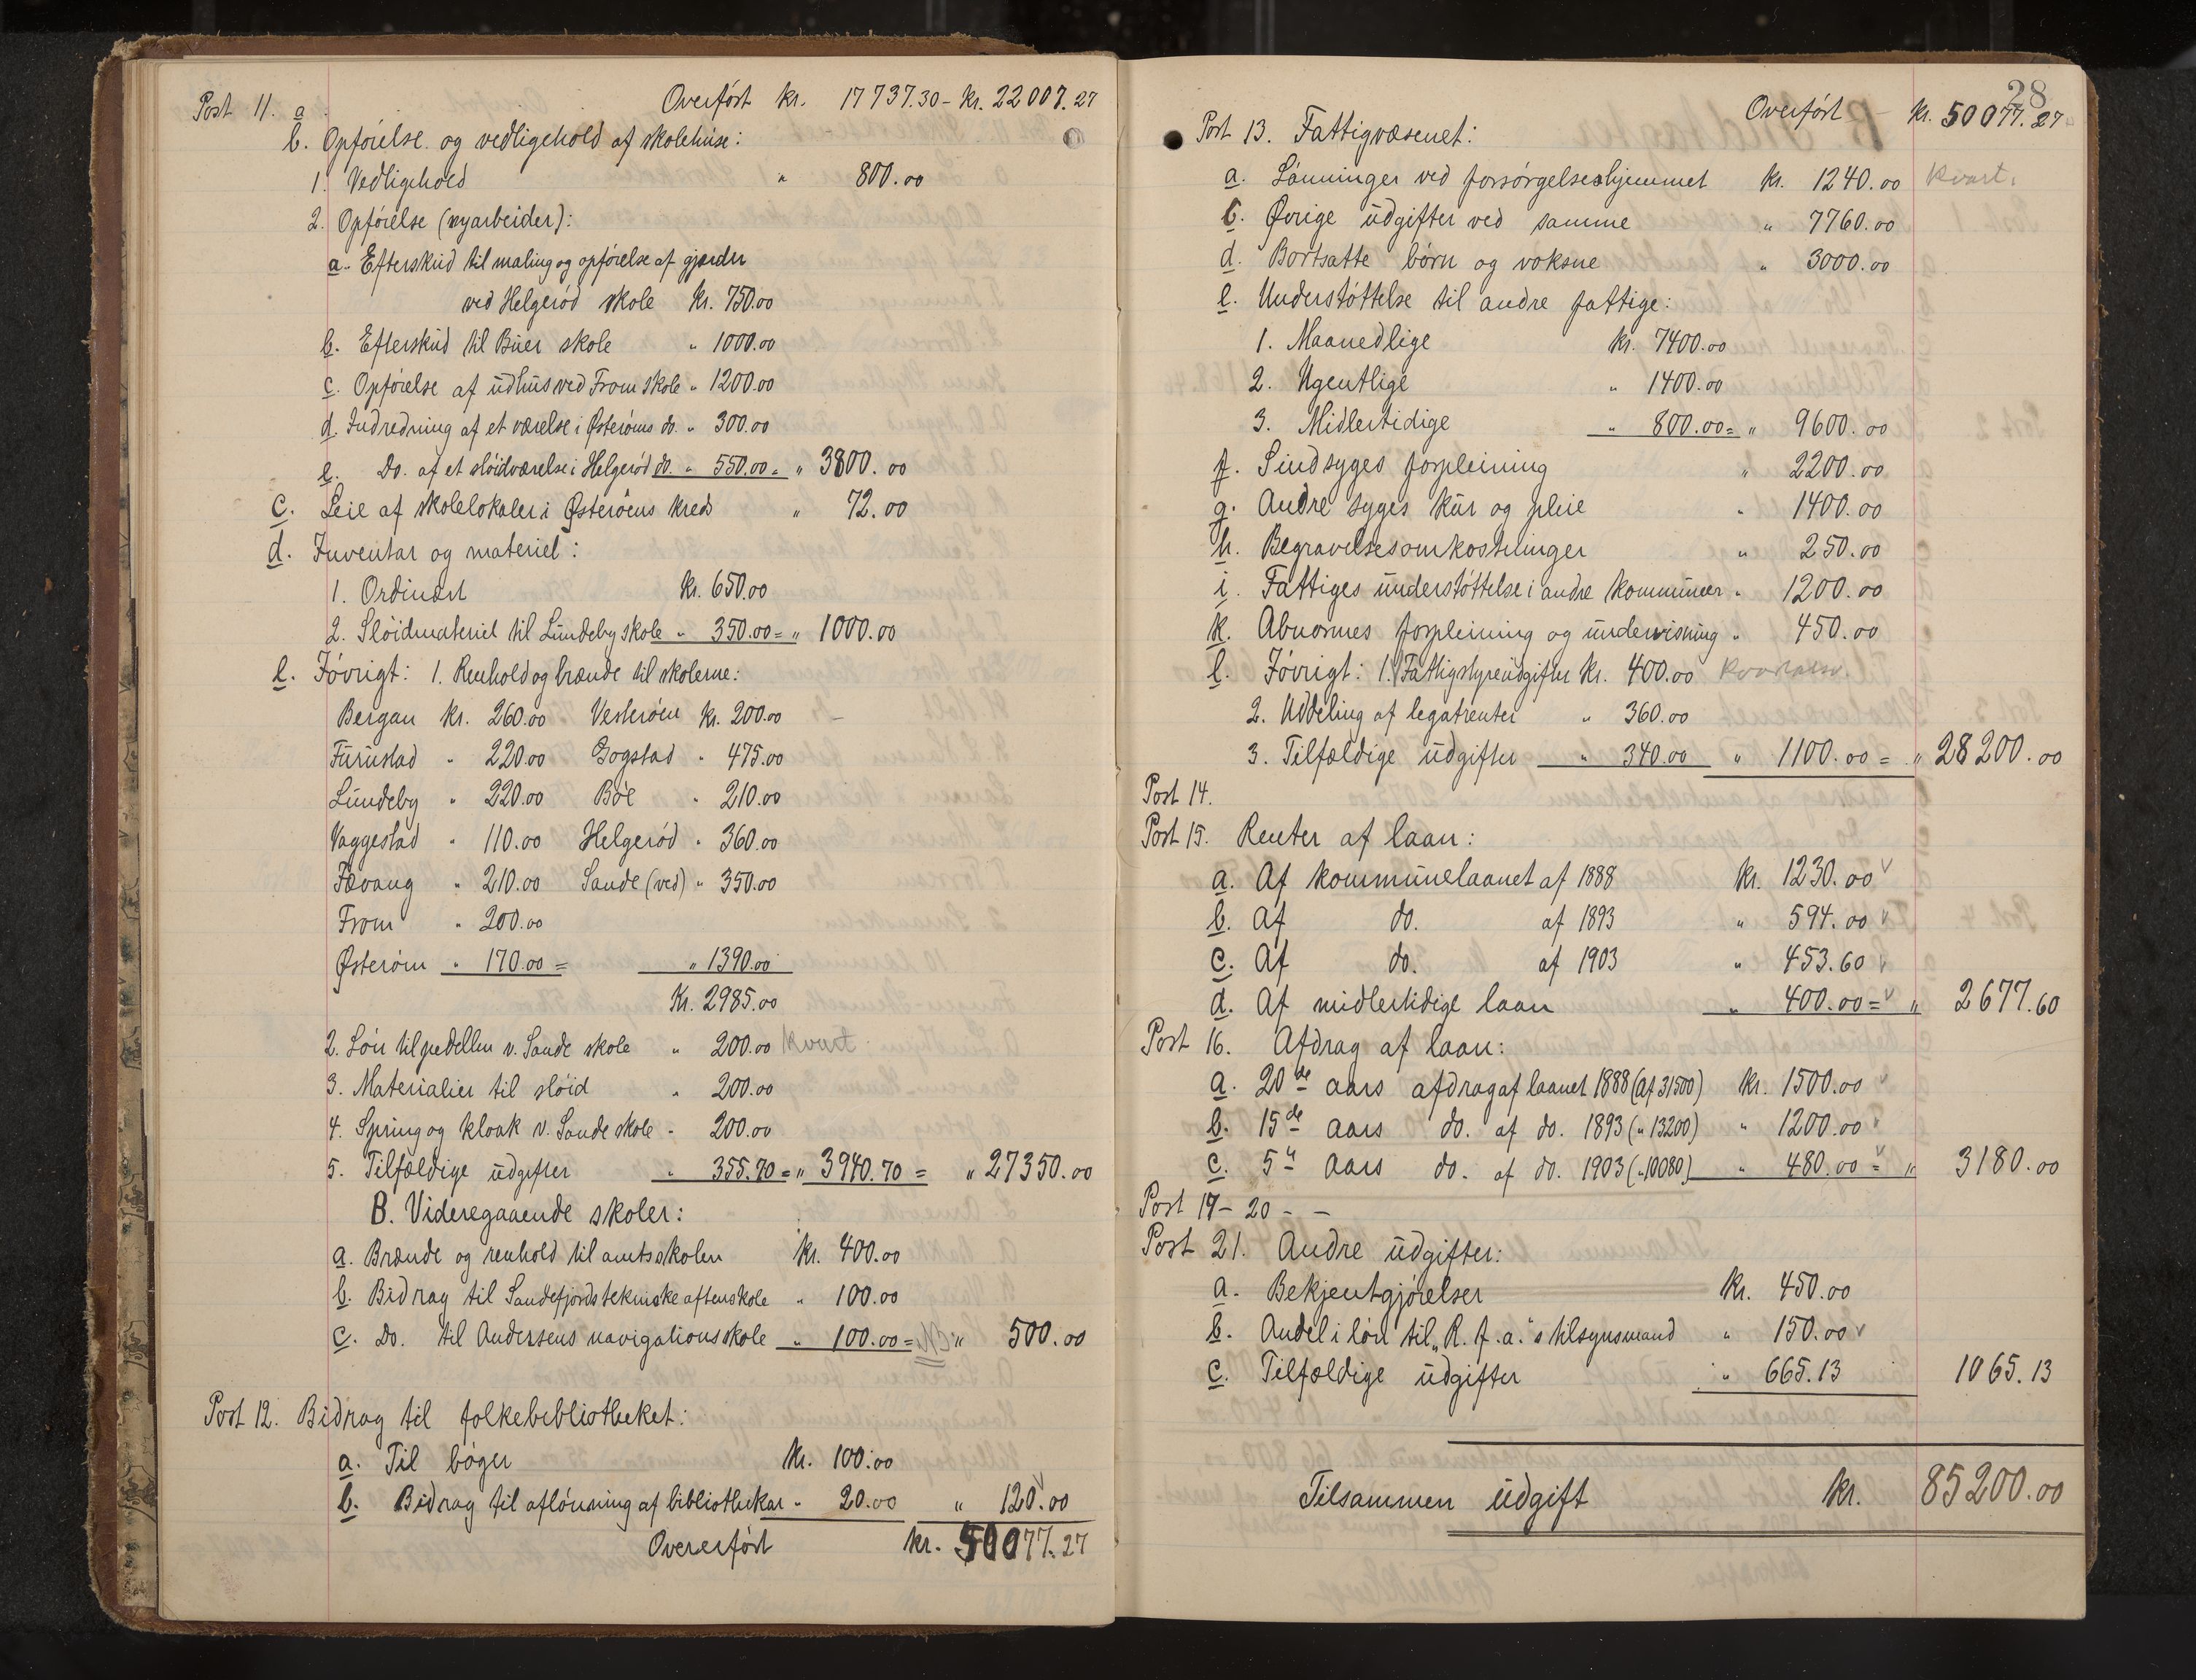 Post 11. a. Overført kr. 17737.30 - kr. 22007.27
b. Opførelse og vedligehold af skolehuse:
1. Vedligehold " 800.00
2. Opførelse (nyarbeider):
a. Efterskud til maling og opførelse af gjærder
ved Helgerød skole kr. 750.00
b. Efterskud til Buer skole " 1000.00
c. Opførelse af udhus ved From skole " 1200.00
d. Indredning af et værelse i Østerøens do. " 300.00
e. Do. af et sløidværelse i Helgerød do. " 550.00 = " 3800.00
c. Leie af skolelokaler i Østerøens kreds " 72.00
d. Inventar og materiel:
1. Ordinært kr. 650.00
2. Sløidmateriel til Lundeby skole " 350.00 = " 1000.00
e. Iøvrigt: 1. Renhold og brænde til skolerne:
Bergan kr. 260.00 Vesterøen kr. 200.00 -
Furustad " 220.00 Gogstad " 475.00
Lundeby " 220.00 Bøe " 210.00
Vaggestad " 110.00 Helgerød " 360.00
Fævang " 210.00 Sande (ved) " 350.00
From " 200.00
Østerøen " 170.00 = " 1390.00
Kr. 2985.00
2. Løn til pedellen v. Sande skole " 200.00 kvart.
3. Materialier til sløid " 200.00
4. Spring og kloak v. Sande skole " 200.00
5. Tilfældige udgifter " 355.70 = " 3940.70 = " 27350.00
B. Videregaaende skoler:
a. Brænde og renhold til amtsskolen kr. 400.00
b. Bidrag til Sandefjords tekniske aftenskole " 100.00
c. Do. til Andersens navigationsskole " 100.00 = NB " 500.00
Post 12. Bidrag til folkebibliotheket:
a. Til bøger kr. 100.00
b. Bidrag til aflønning af bibliothekar " 20.00 " 120.00
Overerført kr. 50077.27
28
Overført - kr. 50077.27
Post 13. Fattigvæsenet:
a. Lønninger ved forsørgelseshjemmet kr. 1240.00 kvart.
b. Øvrige udgifter ved samme " 7760.00
d. Bortsatte børn og voksne " 3000.00
e. Understøttelse til andre fattige:
1. Maanedlige kr. 7400.00
2. Ugentlige " 1400.00
3. Midlertidige " 800.00 = " 9600.00
f. Sindsyges forpleining " 2200.00
g. Andre syges kur og pleie " 1400.00
h. Begravelsesomkostninger " 250.00
i. Fattiges understøttelse i andre kommuner " 1200.00
k. Abnormes forpleining og undervisning " 450.00
l. Iøvrigt: 1. Fattigstyreudgifter kr. 400.00
2. Uddeling af legatrenter " 360.00
3. Tilfældige udgifter " 340.00 " 1100.00 = " 28200.00
Post 14.
Post 15. Renter af laan:
a. Af kommunelaanet af 1888 kr. 1230.00 v
b. Af do. af 1893 " 594.00 v
c. Af do. af 1903 " 453.60 v
d. Af midlertidige laan " 400.00 = v " 2677.60
Post 16. Afdrag af laan:
a. 20de aars afdrag af laanet 1888 (af 31500) kr. 1500.00 v
b. 15de aars do. af do. 1893 (" 13200) " 1200.00 v
c. 5te aars do. af do. 1903 (" 10080) " 480.00 = v " 3180.00
Post 17-20 - -
Post 21. Andre udgifter:
a. Bekjentgjørelser kr. 450.00
b. Andel i løn til "R. f. a."s tilsynsmand " 150.00 v
c. Tilfældige udgifter " 665.13 1065.13
Tilsammen udgift kr. 85200.00